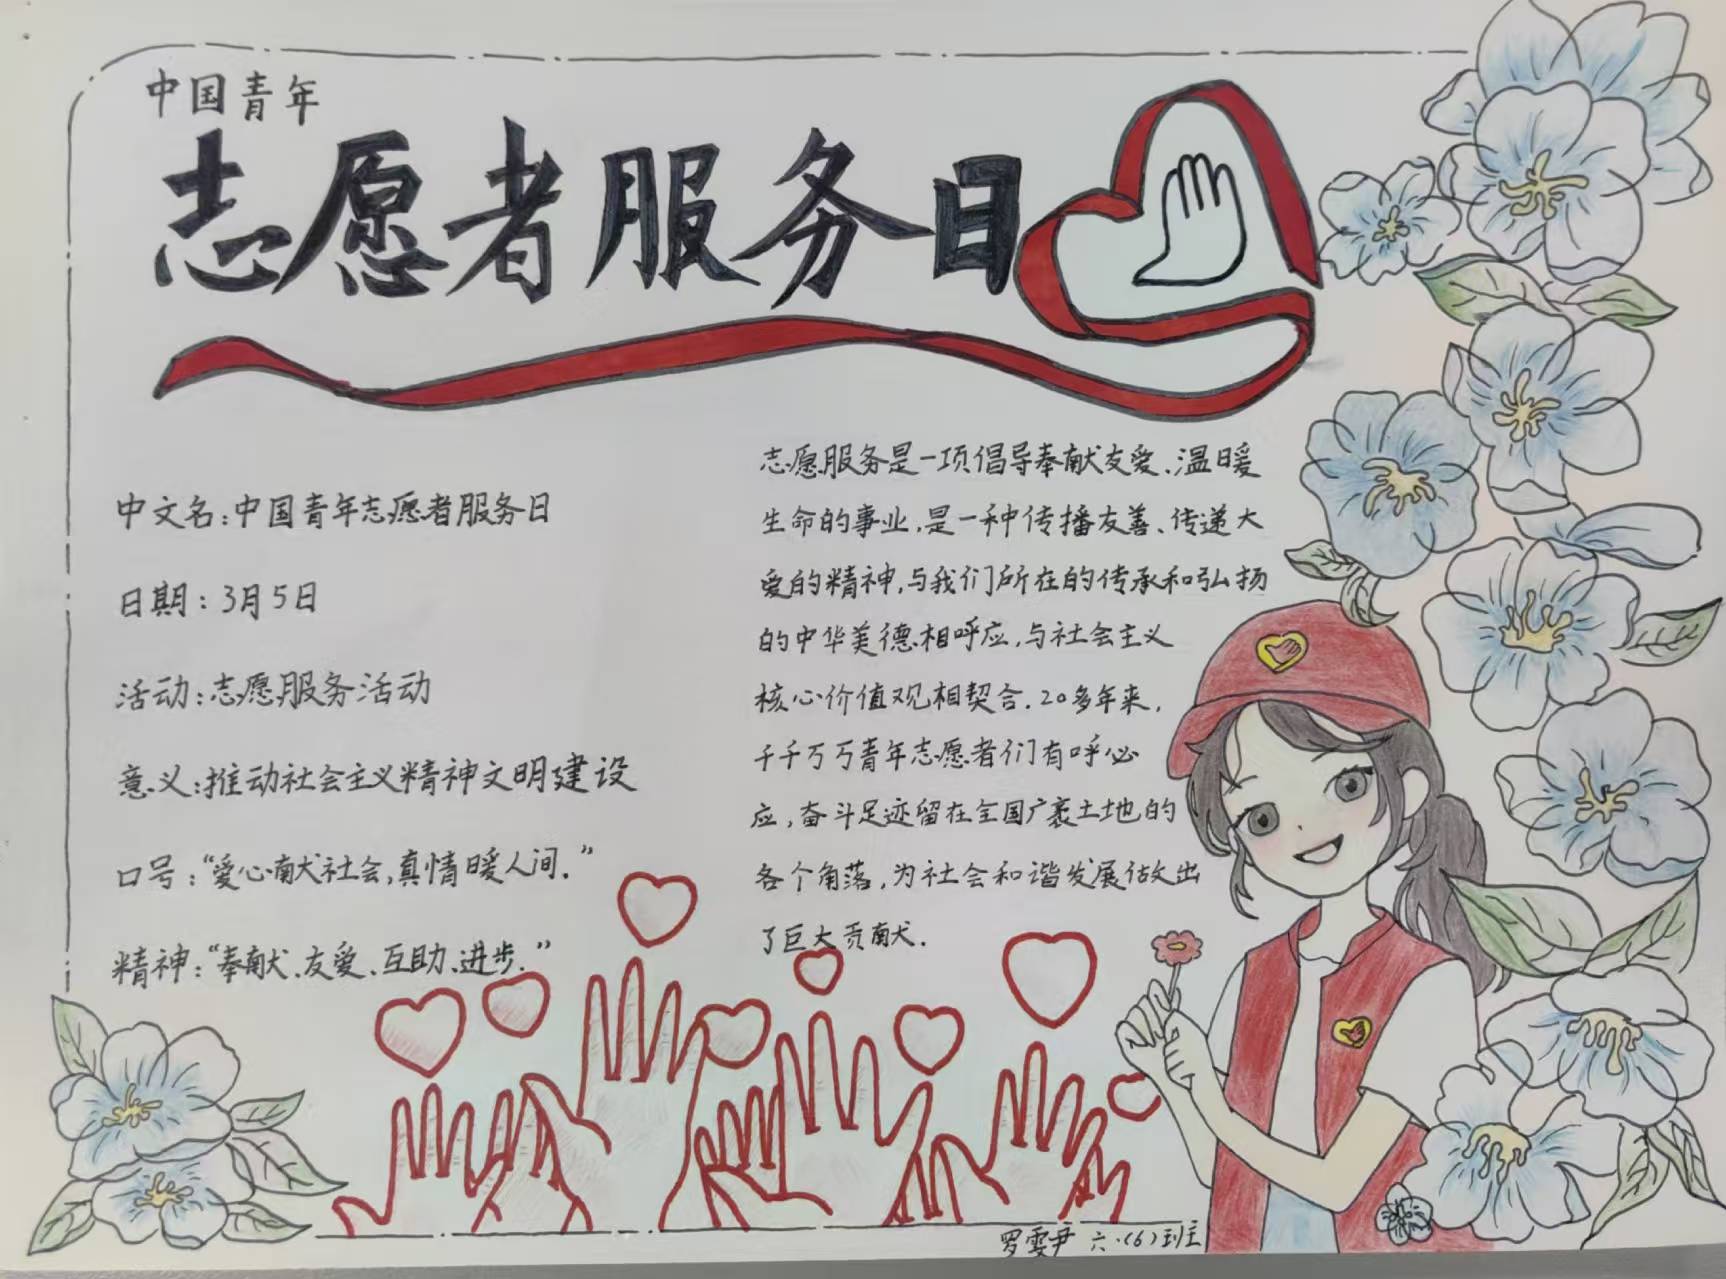 中国青年
志愿者服务日
中文名:中国青年志愿者服务日
日期:3月5日
活动:志愿服务活动
意义:推动社会主义精神文明建设
口号:“爱心献社会,真情暖人间.”
精神:“奉献、友爱、互助、进步.”
志愿服务是一项倡导奉献友爱、温暖
生命的事业,是一种传播友善、传递大
爱的精神,与我们所在的传承和弘扬
的中华美德相呼应,与社会主义
核心价值观相契合.20多年来,
千千万万青年志愿者们有呼必
应,奋斗足迹留在全国广袤土地的
各个角落,为社会和谐发展做出
了巨大贡献.
罗雯尹 六.(6)班